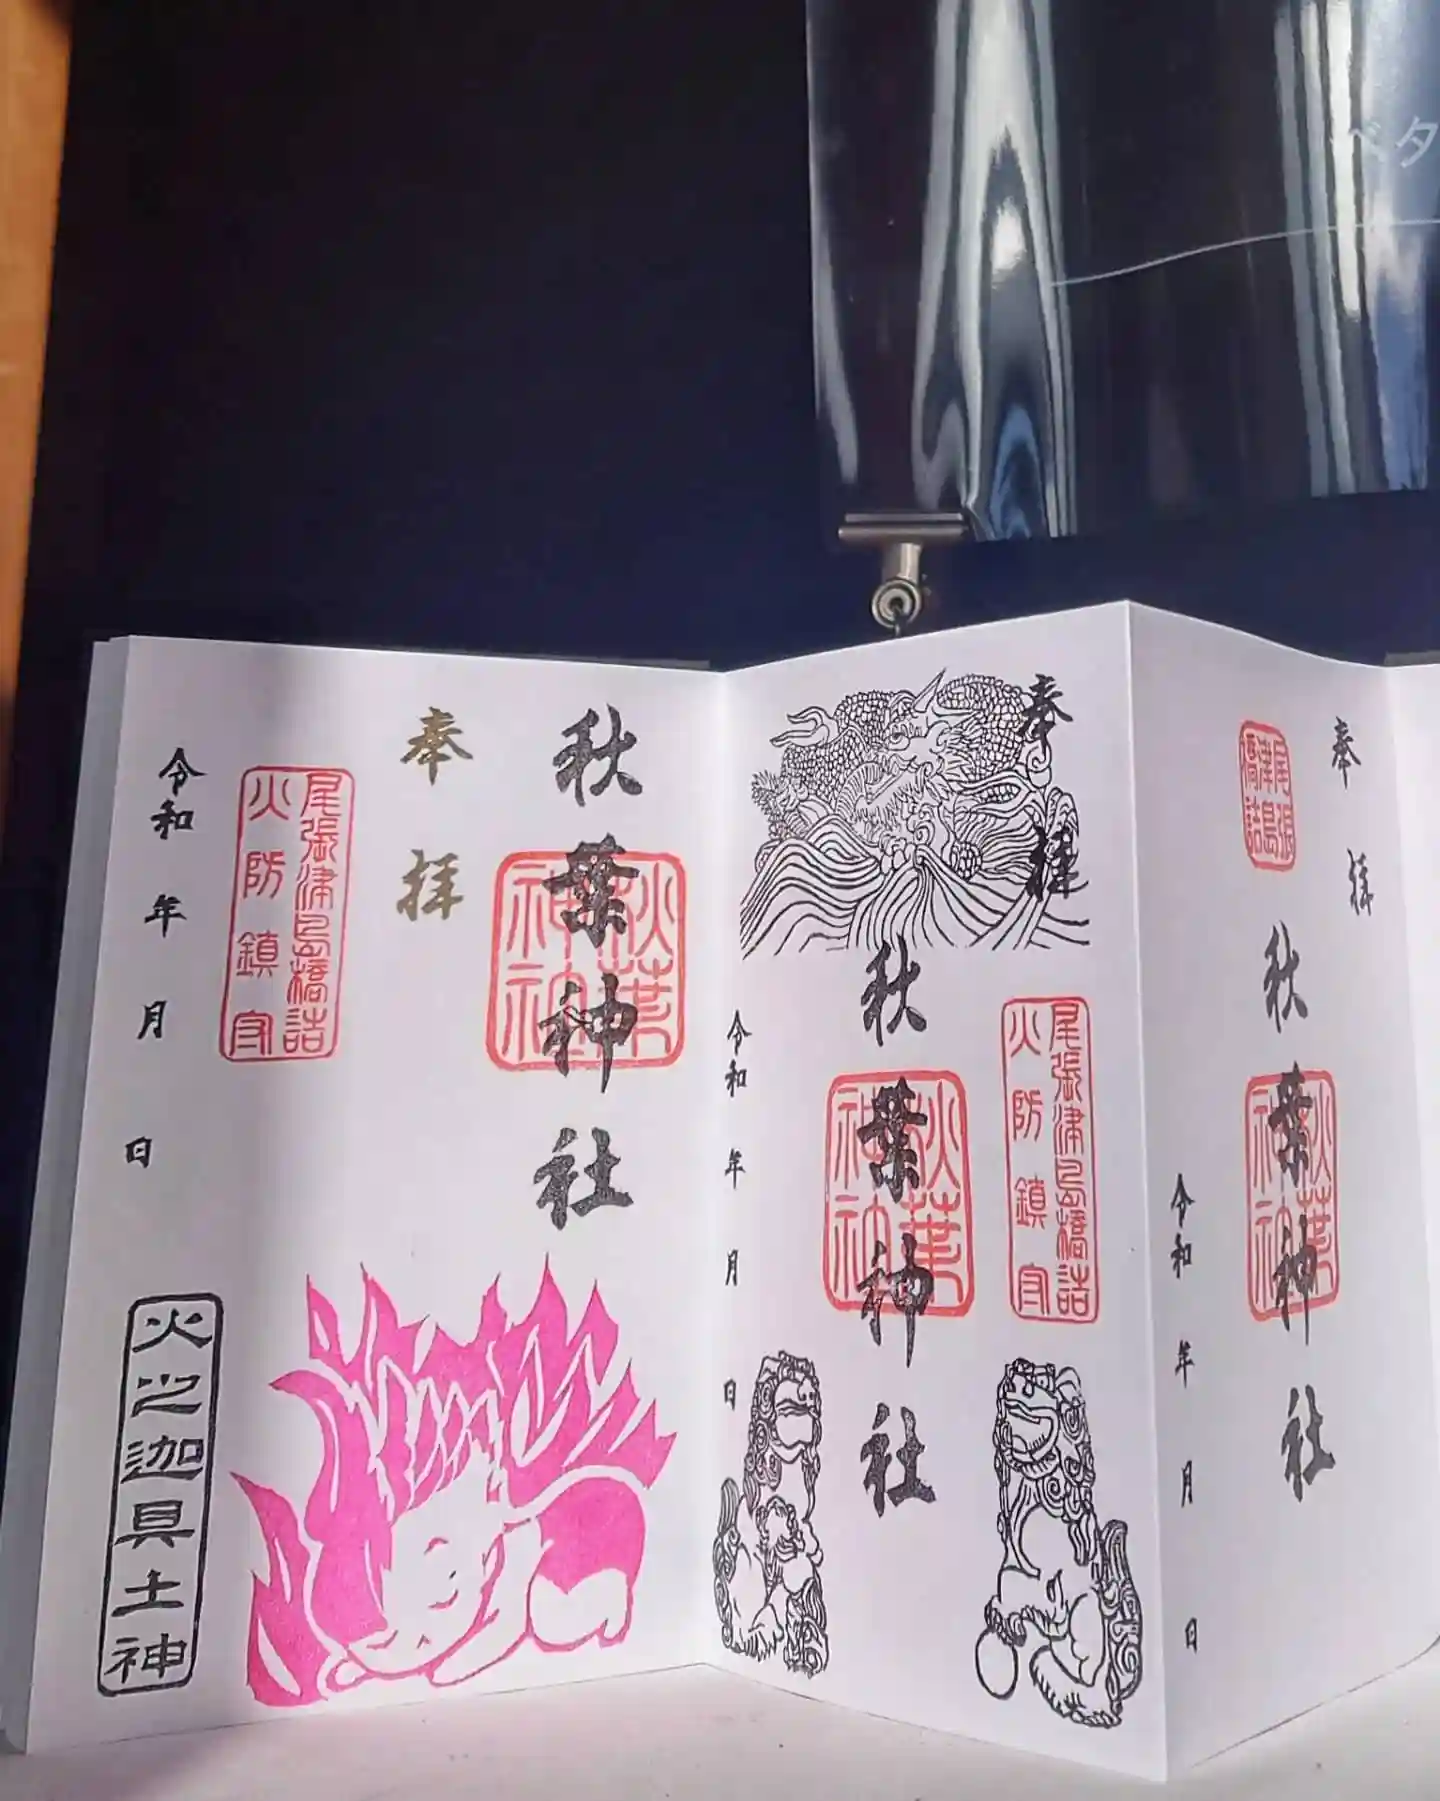 ベタ
奉拝
秋葉神社
尾張津島橋詰
秋葉神社
奉拝
尾張津島橋詰
火防鎮守
秋葉神社
秋葉神社
令和 年 月 日
秋葉神社
秋葉神社
奉拝
尾張津島橋詰
火防鎮守
令和 年 月 日
火之迦具土神
令和 年 月 日